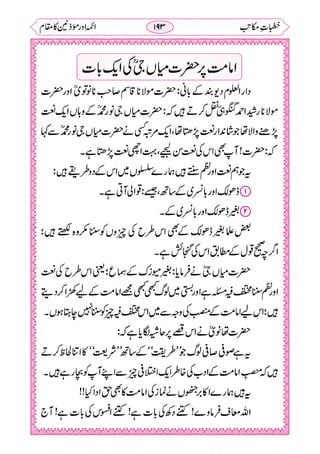 خطباتِ مکاتب ۱۹۳ ائمہ اور مؤذنین کا مقام
امامت پر حضرت میاں جیؒ کی ایک بات
دار العلوم دیوبند کے بانی: حضرت مولانا قاسم صاحب نانوتویؒ اور حضرت
مولانا رشید احمد گنگوہیؒ نقل کرتے ہیں کہ: حضرت میاں جی نور محمدؒ کے وہاں ایک نعت
پڑھنے والا تھا، جو شاندار نعت پڑھتا تھا، ایک مرتبہ کسی نے حضرت میاں جی نور محمدؒ سے کہا
کہ: حضرت! آپ بھی اس کی نعت سن لیجیے، بہت اچھی نعت پڑھتا ہے۔
یہ جو ہم نعت اور نظم سنتے ہیں ہمارے سلسلوں میں اس کے دو طریقے ہیں:
① ڈھولک اور بانسری کے ساتھ، جیسے: قوالی آتی ہے۔
② بغیر ڈھولک اور بانسری کے۔
بعض علما بغیر ڈھولک کے بھی اس طرح کی چیزوں کو سننا مکروہ لکھتے ہیں؛
اگرچہ صحیح قول کے مطابق اس کی گنجائش ہے۔
حضرت میاں جیؒ نے فرمایا: بغیر مزامیر کے سماع؛ یعنی اس طرح کی نعت
اور نظم سننا مختلف فیہ مسئلہ ہے اور بستی میں لوگ کبھی کبھی مجھے امامت کے لیے کھڑا کر دیتے
ہیں؛ اس لیے امامت کے منصب کی وجہ سے میں اس مختلف فیہ چیز کو سننا نہیں چاہتا ہوں۔
حضرت تھانویؒ نے اس قصے پر حاشیہ لگایا ہے کہ:
یہ ہے صوفی صافی لوگ جو "طریقت" کے ساتھ "شریعت" کا اتنا لحاظ کرتے
ہیں کہ محض منصبِ امامت کے ادب کی خاطر ایک اختلافی چیز سے اپنے آپ کو بچا رہے ہیں۔
یہ ہیں ہمارے اکابر جنھوں نے زمانے کی امامت کا بھی حق ادا کیا!!
اللہ معاف فرماوے! کتنے دکھ کی بات ہے! کتنے افسوس کی بات ہے! آج